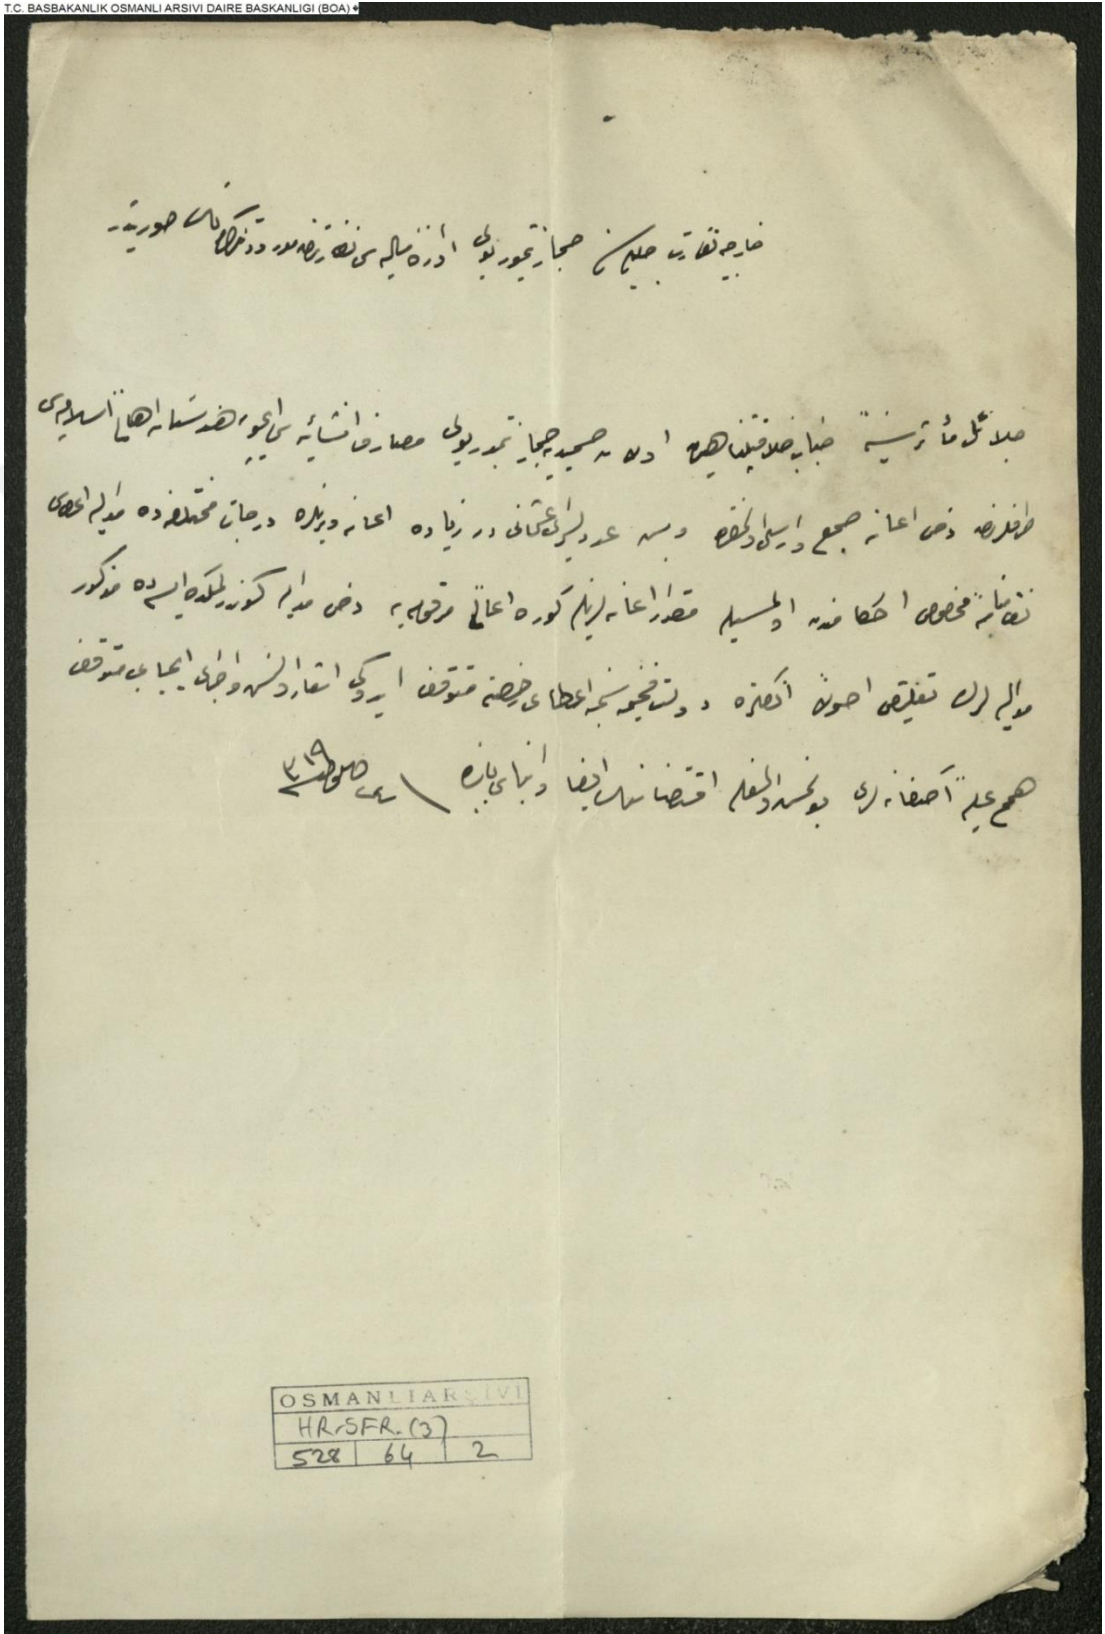 T.C. BASBAKANLIK OSMANLI ARSIVI DAIRE BASKANLIGI (BOA)
خارجیه نظارت جلیله‌سنه حجاز تیمور یولی اداره مالیه‌سی نظارتندن وارد تذکره‌نك صورتیدر
جلائل مآثر سنیهٔ جناب خلافتپناهیدن اولان حمیدیه حجاز تیمور یولی مصارف انشائیه‌سی ایچون هندستان اهالئ اسلامیه‌سی
طرفلرندن دخی اعانه جمع و ارسال اولنمقده و بش عدد لیرای عثمانیدن زیاده اعانه ویرنلره درجات مختلفه‌ده مدالیه اعطاسی
نظامنامهٔ مخصوصی احکامندن اولمسیله مقدار اعانه‌لرینه کوره اهالئ مرقومه‌یه دخی مدالیه کوندرلمکده ایسه‌ده مذکور
مدالیه‌لرك تعلیقی اصولاً انکلتره دولت فخیمه‌سنجه اعطای رخصته متوقف ایدوکی اشعار اولنمش و اجرای ایجابی متوقف
همم علیهٔ آصفانه‌لری بولنمش اولمغله اقتضاسنك ایفا و انباسی بابنده
OSMANLI ARŞİVİ
HR.SFR.(3)
528 64 2